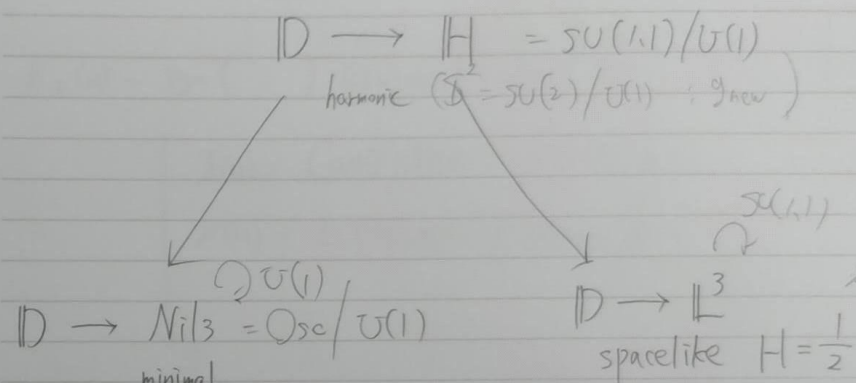 𝔻 → ℍ = SU(1,1)/U(1)
harmonic (𝕊² = SU(2)/U(1) : g new)
SU(1,1)
U(1)
𝔻 → Nil₃ = Osc/U(1)
minimal
𝔻 → 𝕃³
spacelike H = 1/2